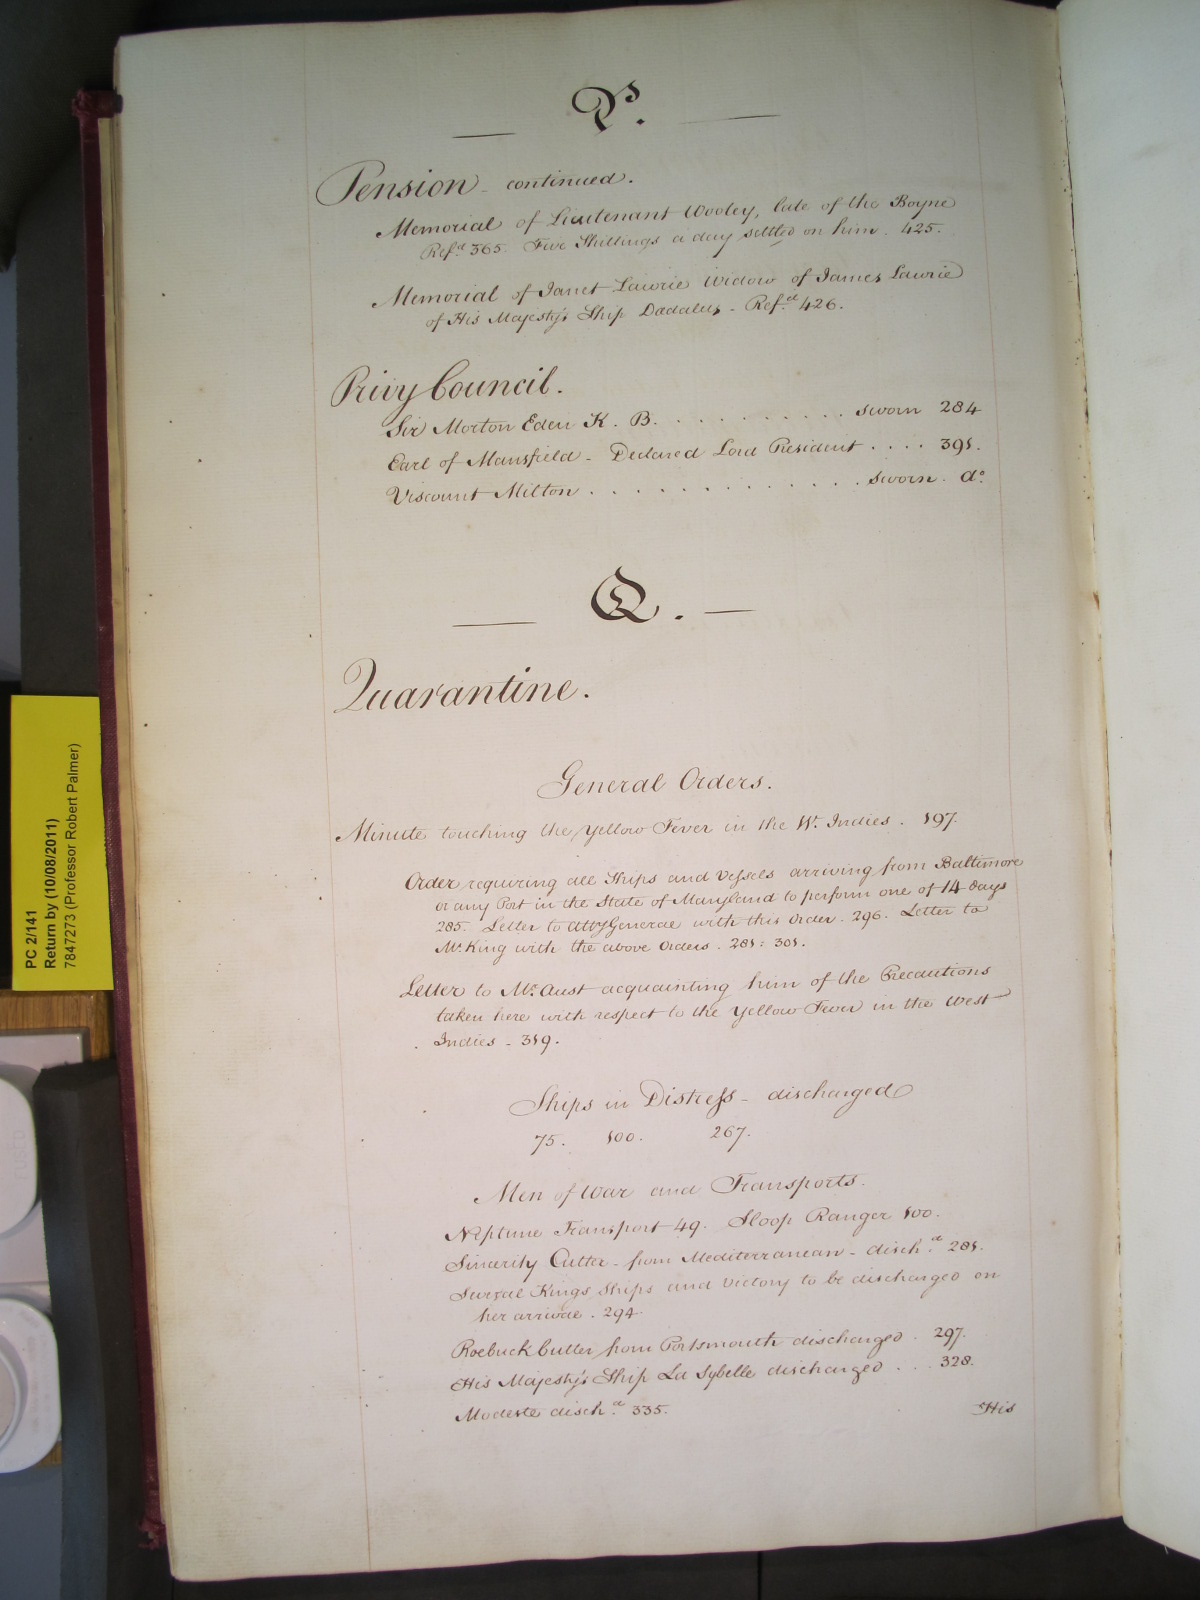 P.
Pension - continued.
Memorial of Lieutenant Wooley, late of the Boyne
Refd. 365. Five Shillings a day settled on him. 425.
Memorial of Janet Lawrie Widow of James Lawrie
of His Majesty's Ship Dadalus - Refd. 426.
Privy Council.
Sir Morton Eden K. B. . . . . . . . . . . sworn 284
Earl of Mansfield - Declared Lord President . . . . 391.
Viscount Milton . . . . . . . . . . . . . sworn. do.
Q.
Quarantine.
General Orders.
Minute touching the Yellow Fever in the W. Indies. 197.
Order requiring all Ships and Vessels arriving from Baltimore
or any Port in the State of Maryland to perform one of 14 days
285. Letter to Atty General with this Order. 296. Letter to
Mr. King with the above Orders. 281: 301.
Letter to Mr. Aust acquainting him of the Precautions
taken here with respect to the Yellow Fever in the West
Indies - 319.
Ships in Distress - discharged
75. 100. 267.
Men of War and Transports.
Neptune Transport 49. Sloop Ranger 100.
Sincerity Cutter - from Mediterranean - dischd. 281.
Several Kings Ships and Victory to be discharged on
her arrival. 294.
Roebuck Cutter from Portsmouth discharged. 297.
His Majesty's Ship La Sybelle discharged . . . 328.
Modeste dischd. 335.
His
PC 2/141
Return by (10/08/2011)
7847273 (Professor Robert Palmer)